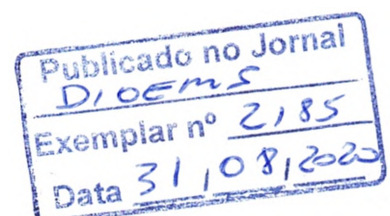 Publicado no Jornal
DIOEMS
Exemplar nº 2185
Data 31/08/2020